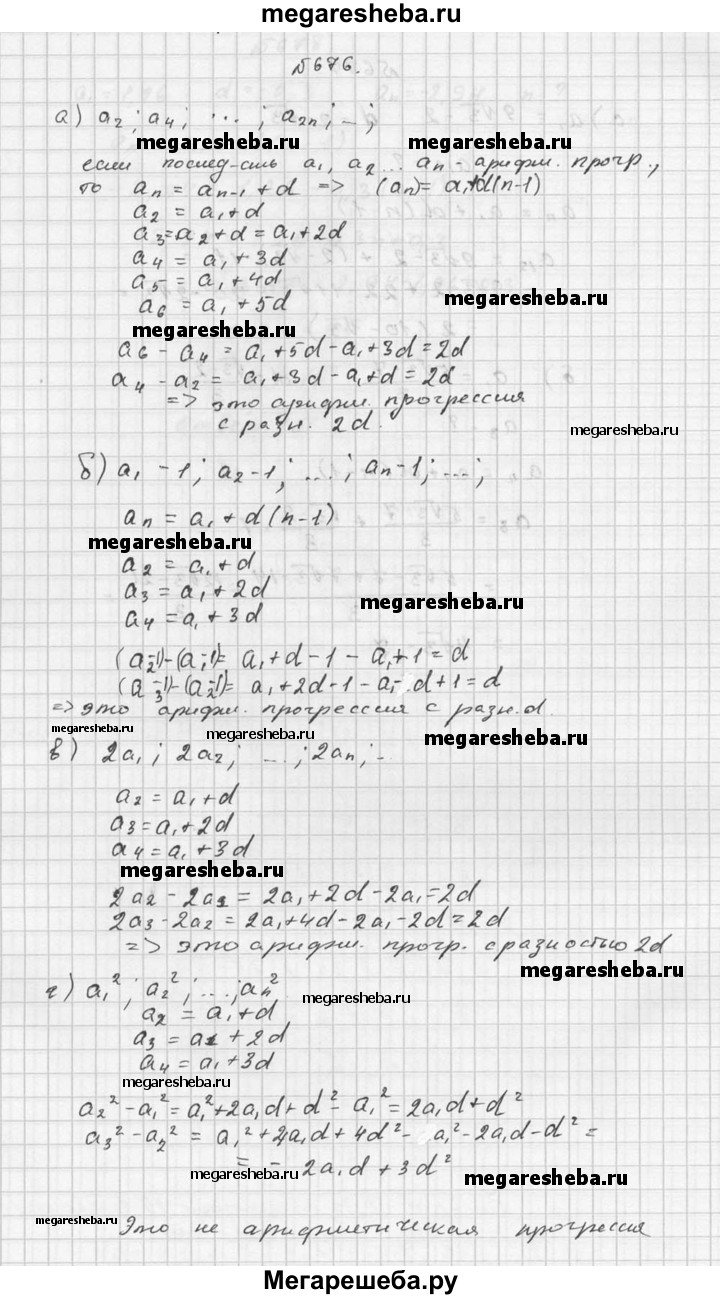 megaresheba.ru
№676.
а) a₂; a₄; ...; a₂ₙ; ...;
megaresheba.ru megaresheba.ru
если послед-сть a₁, a₂ ... aₙ - арифм. прогр.,
то aₙ = aₙ₋₁ + d => (aₙ) = a₁ + d(n-1)
a₂ = a₁ + d
a₃ = a₂ + d = a₁ + 2d
a₄ = a₁ + 3d
a₅ = a₁ + 4d
a₆ = a₁ + 5d
megaresheba.ru
megaresheba.ru
a₆ - a₄ = a₁ + 5d - a₁ + 3d = 2d
a₄ - a₂ = a₁ + 3d - a₁ + d = 2d
=> это арифм. прогрессия
с разн. 2d.
megaresheba.ru
б) a₁ - 1; a₂ - 1; ...; aₙ - 1; ...;
aₙ = a₁ + d(n-1)
megaresheba.ru
a₂ = a₁ + d
a₃ = a₁ + 2d
megaresheba.ru
a₄ = a₁ + 3d
(a₂-1)-(a₁-1) = a₁ + d - 1 - a₁ + 1 = d
(a₃-1)-(a₂-1) = a₁ + 2d - 1 - a₁ - d + 1 = d
=> это арифм. прогрессия с разн. d.
megaresheba.ru megaresheba.ru megaresheba.ru
в) 2a₁; 2a₂; ...; 2aₙ; ...
a₂ = a₁ + d
a₃ = a₁ + 2d
a₄ = a₁ + 3d
megaresheba.ru megaresheba.ru
2a₂ - 2a₁ = 2a₁ + 2d - 2a₁ = 2d
2a₃ - 2a₂ = 2a₁ + 4d - 2a₁ - 2d = 2d
=> это арифм. прогр. с разностью 2d
megaresheba.ru
г) a₁²; a₂²; ...; aₙ²
megaresheba.ru
a₂ = a₁ + d
a₃ = a₁ + 2d
a₄ = a₁ + 3d
megaresheba.ru
a₂² - a₁² = a₁² + 2a₁d + d² - a₁² = 2a₁d + d²
a₃² - a₂² = a₁² + 4a₁d + 4d² - a₁² - 2a₁d - d² =
= 2a₁d + 3d²
megaresheba.ru megaresheba.ru
megaresheba.ru
Это не арифметическая прогрессия
Мегарешеба.ру